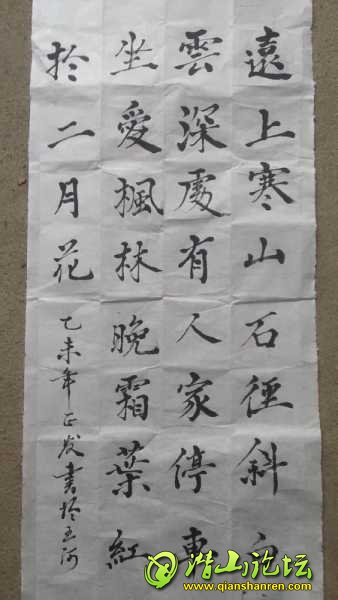 遠上寒山石徑斜白
雲深處有人家停車
坐愛楓林晚霜葉紅
於二月花
乙未年正发書於玉河
潜山论坛
www.qianshanren.com